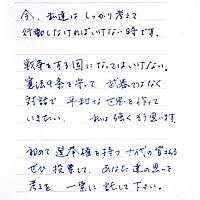 今、私達は しっかり考えて
行動しなければいけない時です。
戦争をする国になってはいけない。
憲法9条を守って、武器ではなく
対話で 平和な世界を作って
いきたい。 私は強くそう思います。
初めて選挙権を持つ十代の皆さん
ぜひ投票して、あなた達の思って
考えを 一票に託して下さい。